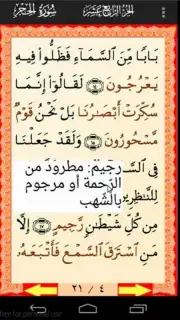 الجزء الرابع عشر
سُورَةُ الحِجر
بَابًا مِّنَ ٱلسَّمَآءِ فَظَلُّوا۟ فِيهِ
يَعْرُجُونَ ١٤ لَقَالُوٓا۟ إِنَّمَا
سُكِّرَتْ أَبْصَٰرُنَا بَلْ نَحْنُ قَوْمٌ
مَّسْحُورُونَ ١٥ وَلَقَدْ جَعَلْنَا
فِى ٱلسَّ
رجيم: مطرود من
الرّحمة أو مرجوم
بالشّهب
لِلنَّٰظِرِ
مِن كُلِّ شَيْطَٰنٍ رَّجِيمٍ ١٧ إِلَّا
مَنِ ٱسْتَرَقَ ٱلسَّمْعَ فَأَتْبَعَهُۥ
٤ / ٢١
free for personal use